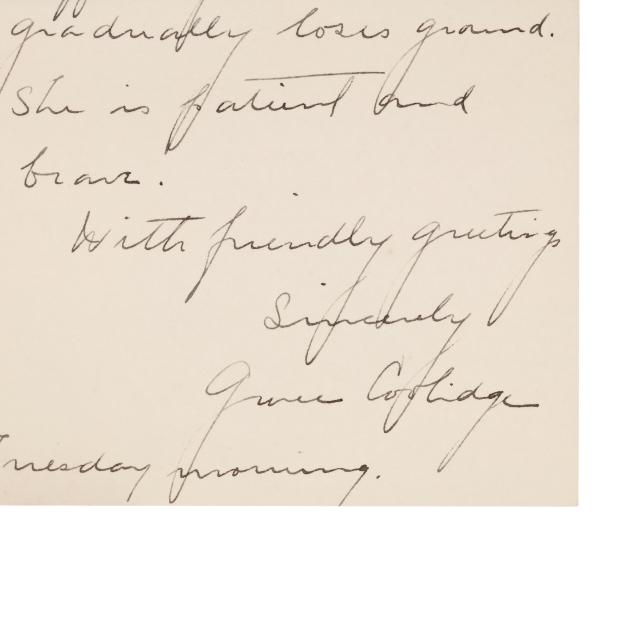 gradually loses ground.
She is patient and
brave.
With friendly greetings
Sincerely
Grace Coolidge
Tuesday morning.